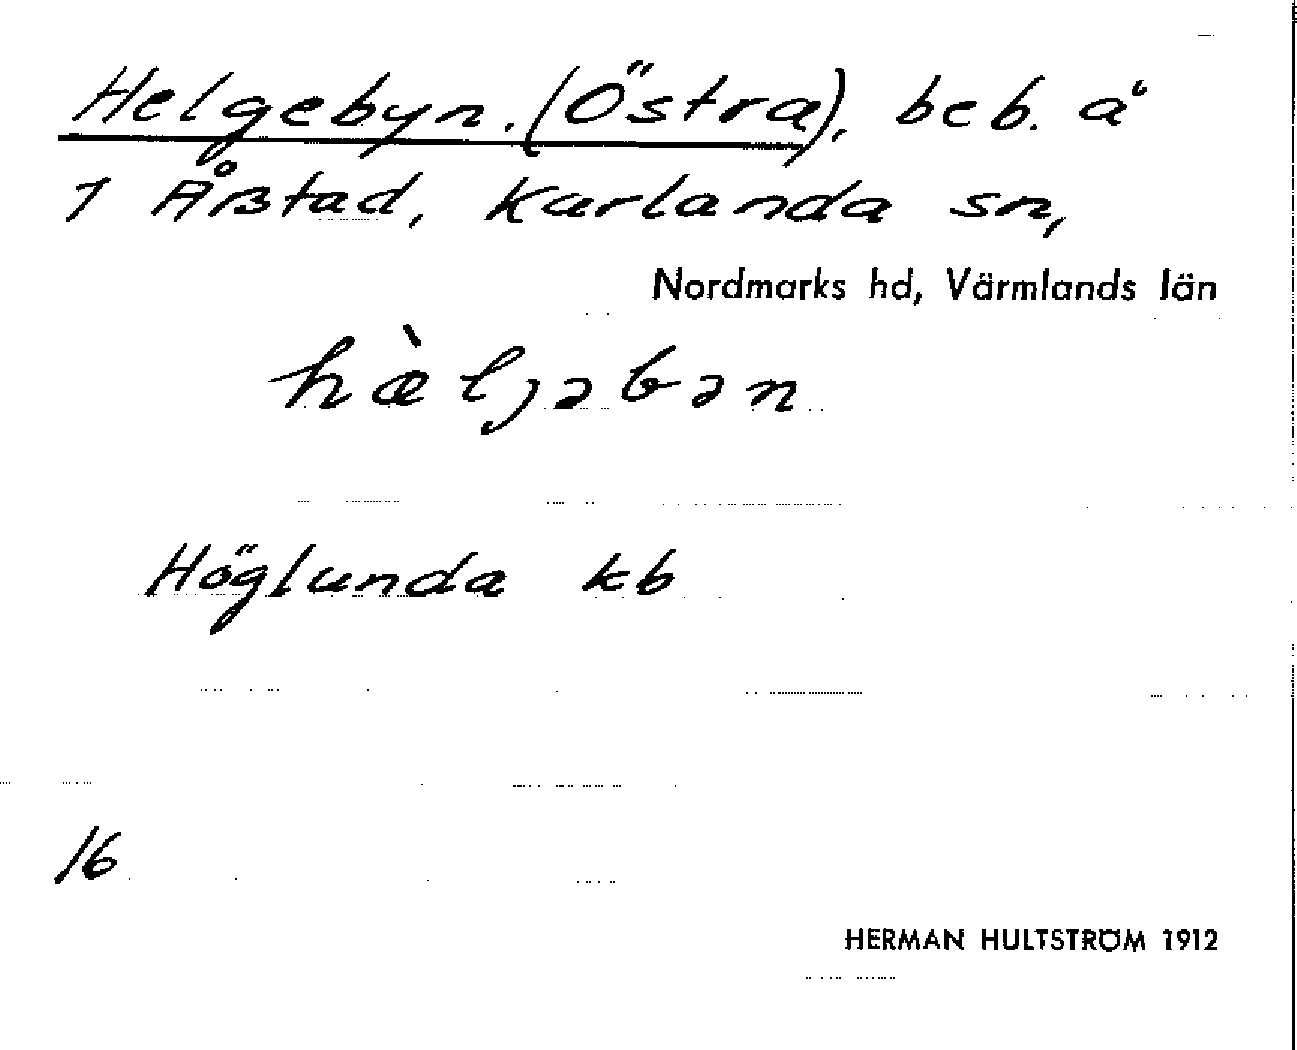 Helgebyn. (Östra), beb. å
1 Årstad, Karlanda sn,
Nordmarks hd, Värmlands län
hæ̀ljəbən
Höglunda kb
16
HERMAN HULTSTRÖM 1912